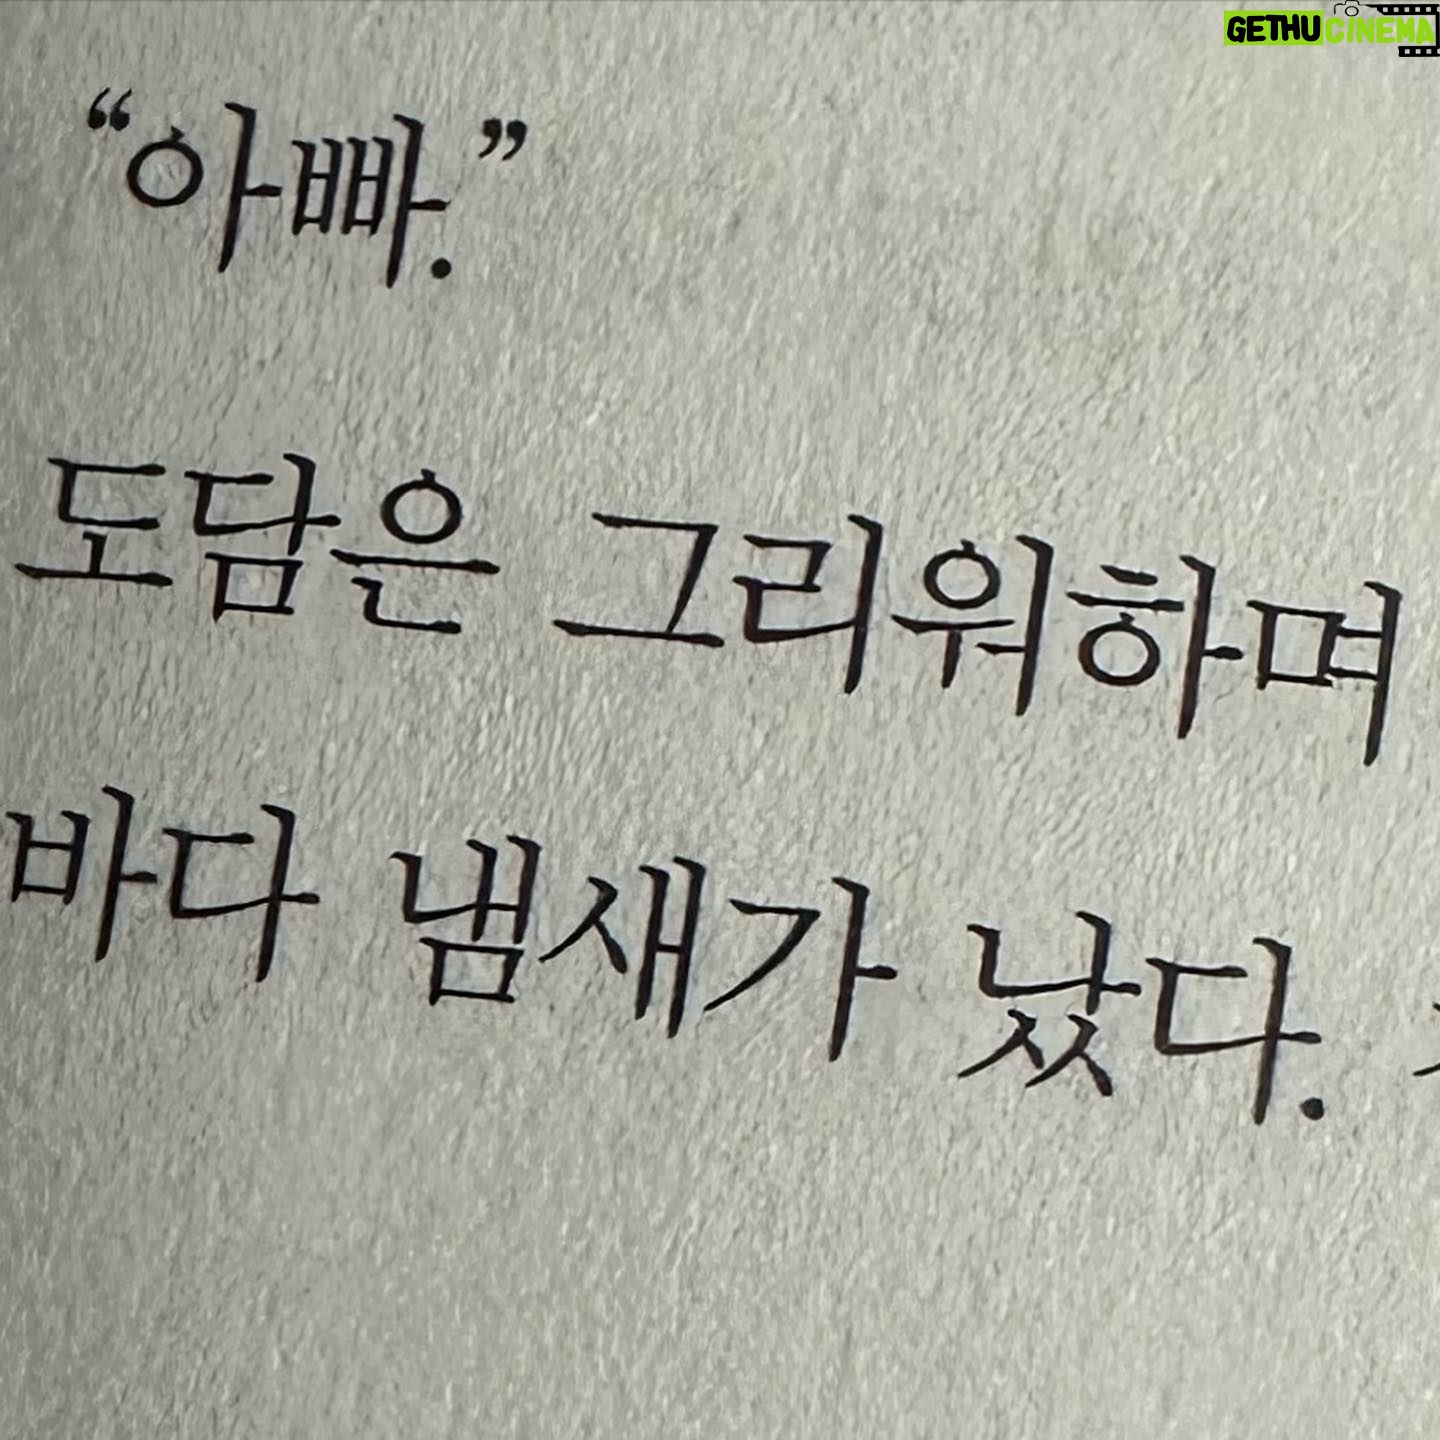 GETHUCINEMA
“아빠.”
도담은 그리워하며
바다 냄새가 났다.